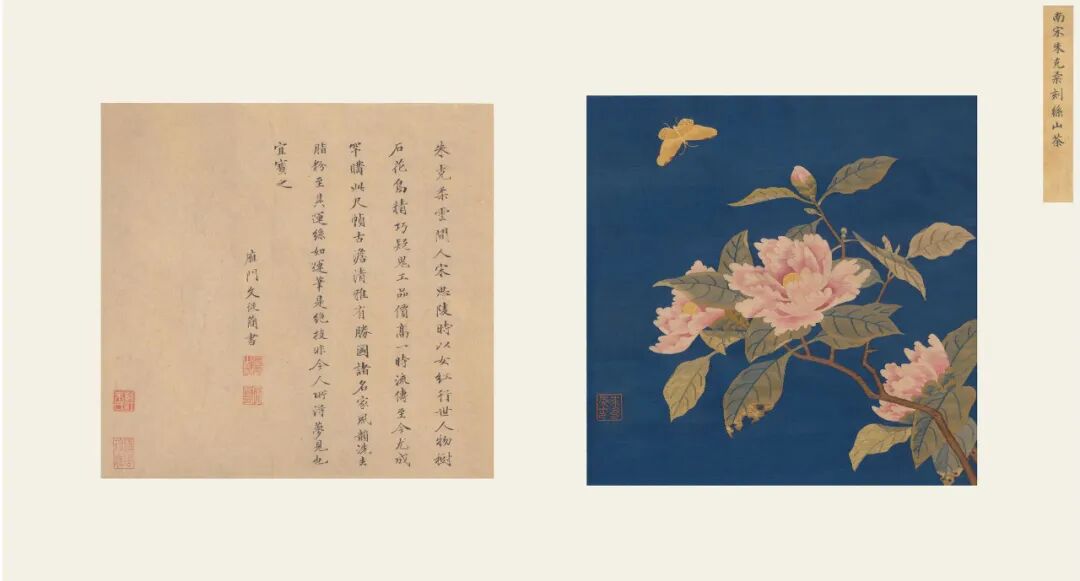 南宋朱克柔刻絲山茶
朱克柔雲間人宋思陵時以女紅行世人物樹
石花鳥精巧疑鬼工品價高一時流傳至今尤成
罕購此尺幀古澹清雅有勝國諸名家風韻洗去
脂粉至其運絲如運筆是絕技非今人所得夢見也
宜寶之
雁門文從簡書